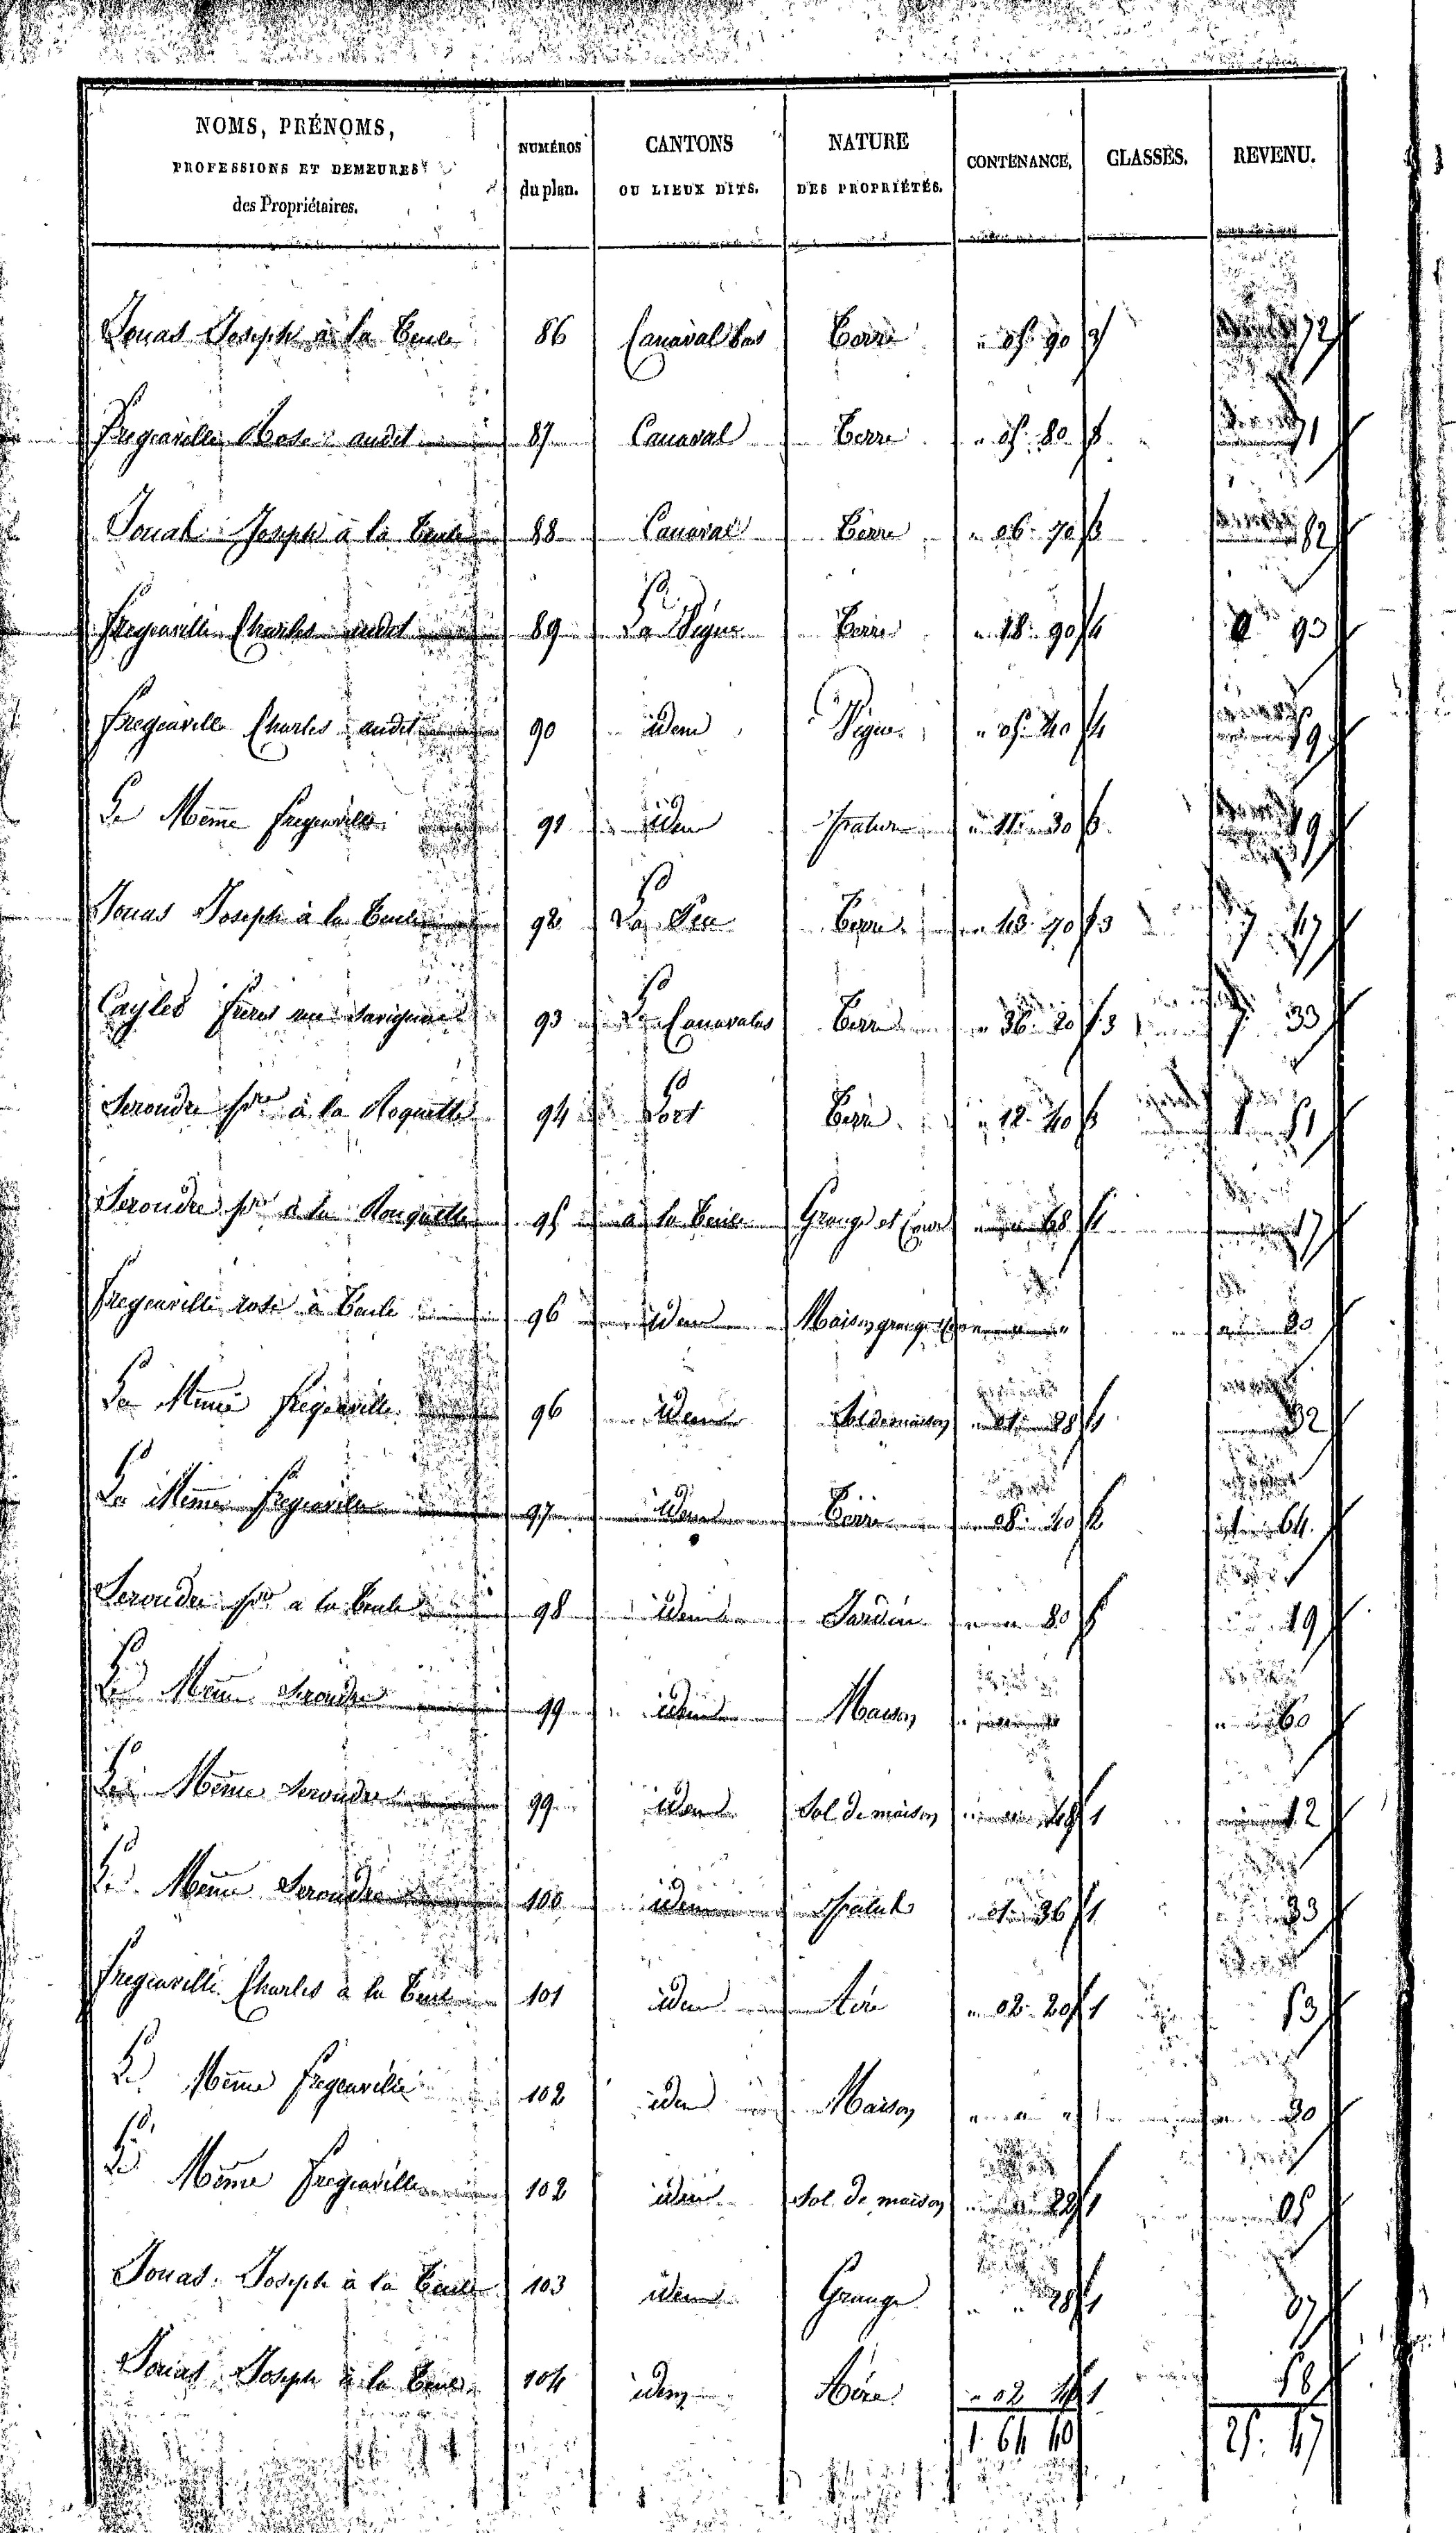 NOMS, PRÉNOMS, PROFESSIONS ET DEMEURES des Propriétaires. NUMÉROS du plan. CANTONS OU LIEUX DITS. NATURE DES PROPRIÉTÉS. CONTENANCE. CLASSES. REVENU.
Jouas Joseph à la Teule 86 Canaval bas Terre 05 90 3 72
Fregeaville Rose audit 87 Canaval Terre 05 80 71
Jouas Joseph à la Teule 88 Canaval Terre 06 70 3 82
Fregeaville Charles audit 89 La Vigne Terre 18 90 4 93
Fregeaville Charles audit 90 idem Vigne 05 40 4 59
Le Même Fregeaville 91 idem Pature 11 30 19
Jouas Joseph à la Teule 92 La Terre 43 70 3 7 47
Cayles frères 93 Terre 36 20 3 7 33
Seroudre à la Roquette 94 Port Terre 12 40 3 1 51
Seroudre à la Rouquette 95 à la Teule Grange et Cour 68 1 17
Fregeaville rose à Teule 96 idem Maison grange 20
La Même Fregeaville 96 idem Sol de maison 01 28 1 32
La Même Fregeaville 97 idem Terre 08 40 2 64
Seroudre a la Teule 98 idem Jardin 80 19
Le Même Seroudre 99 idem Maison 60
Le Même Seroudre 99 idem Sol de maison 49 1 12
Le Même Seroudre 100 idem 01 36 1 33
Fregeaville Charles à la Teule 101 idem Aire 02 20 1 53
Le Même Fregeaville 102 idem Maison 30
Le Même Fregeaville 102 idem Sol de maison 22 1 05
Jouas Joseph à la Teule 103 idem Grange 28 1 07
Jouas Joseph à la Teule 104 idem Aire 02 1 58
1 64 40 25 47